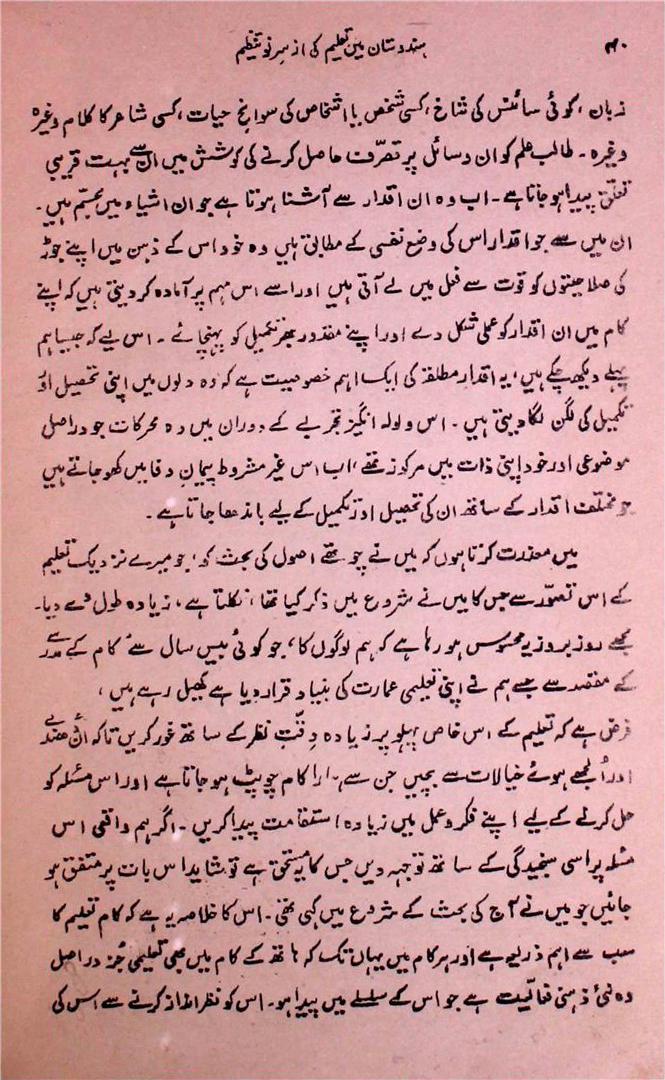 ۴۰ ہندوستان میں تعلیم کی از سرِ نو تنظیم
زبان، کوئی سائنس کی شاخ، کسی شخص یا اشخاص کی سوانح حیات، کسی شاعر کا کلام وغیرہ
وغیرہ ۔ طالب علم کو ان وسائل پر تصرّف حاصل کرنے کی کوشش میں ان سے بہت قریبی
تعلق پیدا ہو جاتا ہے ۔ اب وہ ان اقدار سے آشنا ہوتا ہے جو ان اشیاء میں مجسم ہیں ۔
ان میں سے جو اقدار اس کی وضع نفسی کے مطابق ہیں وہ خود اس کے ذہن میں اپنے جوڑ
کی صلاحیتوں کو قوت سے فعل میں لے آتی ہیں اور اسے اس مہم پر آمادہ کر دیتی ہیں کہ اپنے
کام میں ان اقدار کو عملی شکل دے اور اپنے مقدور بھر تکمیل کو پہنچائے ۔ اس لیے کہ جیسا ہم
پہلے دیکھ چکے ہیں، یہ اقدار مطلقہ کی ایک اہم خصوصیت ہے کہ وہ دلوں میں اپنی تحصیل اور
تکمیل کی لگن لگا دیتی ہیں ۔ اس ولولہ انگیز تجربے کے دوران میں وہ محرکات جو دراصل
موضوعی اور خود اپنی ذات میں مرکوز تھے، اب اس غیر مشروط پیمانِ وفا میں کھو جاتے ہیں
جو مختلف اقدار کے ساتھ ان کی تحصیل اور تکمیل کے لیے باندھا جاتا ہے ۔
میں معذرت کرتا ہوں کہ میں نے چوتھے اصول کی بحث کو، جو میرے نزدیک تعلیم
کے اس تصوّر سے جس کا میں نے شروع میں ذکر کیا تھا، نکلتا ہے، زیادہ طول دے دیا ۔
مجھے روز بروز یہ محسوس ہو رہا ہے کہ ہم لوگوں کا، جو کوئی بیس سال سے کام کے مدرسے
کے مقصد سے جسے ہم نے اپنی تعلیمی عمارت کی بنیاد قرار دیا ہے کھیل رہے ہیں،
فرض ہے کہ تعلیم کے اس خاص پہلو پر زیادہ دقّتِ نظر کے ساتھ غور کریں تاکہ ان
اور اُلجھے ہوئے خیالات سے بچیں جن سے سارا کام چوپٹ ہو جاتا ہے اور اس مسئلہ کو
حل کرنے کے لیے اپنے فکر و عمل میں زیادہ استقامت پیدا کریں ۔ اگر ہم واقعی اس
مسئلہ پر اسی سنجیدگی کے ساتھ توجہ دیں جس کا یہ مستحق ہے تو شاید اس بات پر متفق ہو
جائیں جو میں نے آج کی بحث کے شروع میں کہی تھی ۔ اس کا خلاصہ یہ ہے کہ کام تعلیم کا
سب سے اہم ذریعہ ہے اور ہر کام میں یہاں تک کہ ہاتھ کے کام میں بھی تعلیمی جُز دراصل
وہ نئی ذہنی فعالیت ہے جو اس کے سلسلے میں پیدا ہو ۔ اس کو نظر انداز کرنے سے اس کی